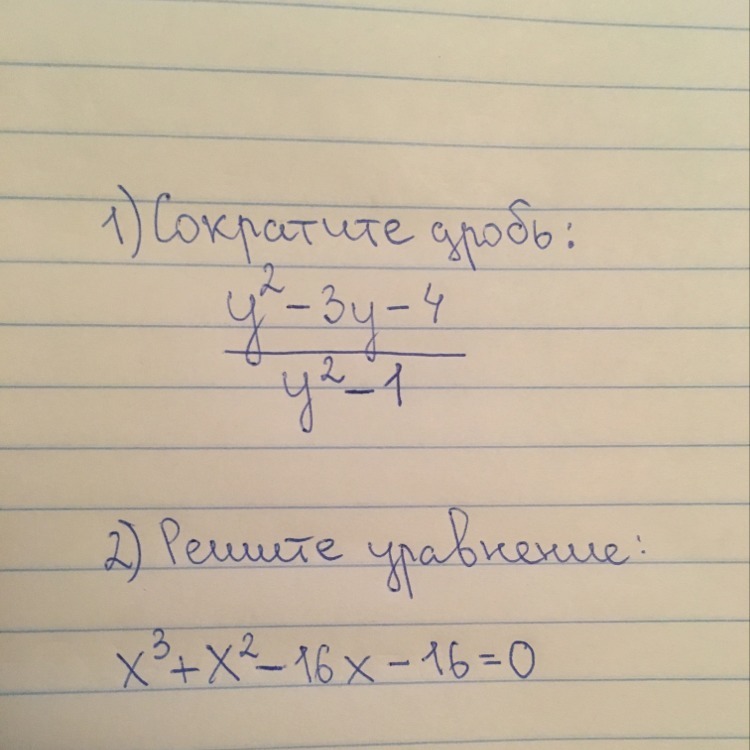 1) Сократите дробь:
y² - 3y - 4
y² - 1
2) Решите уравнение:
x³ + x² - 16x - 16 = 0